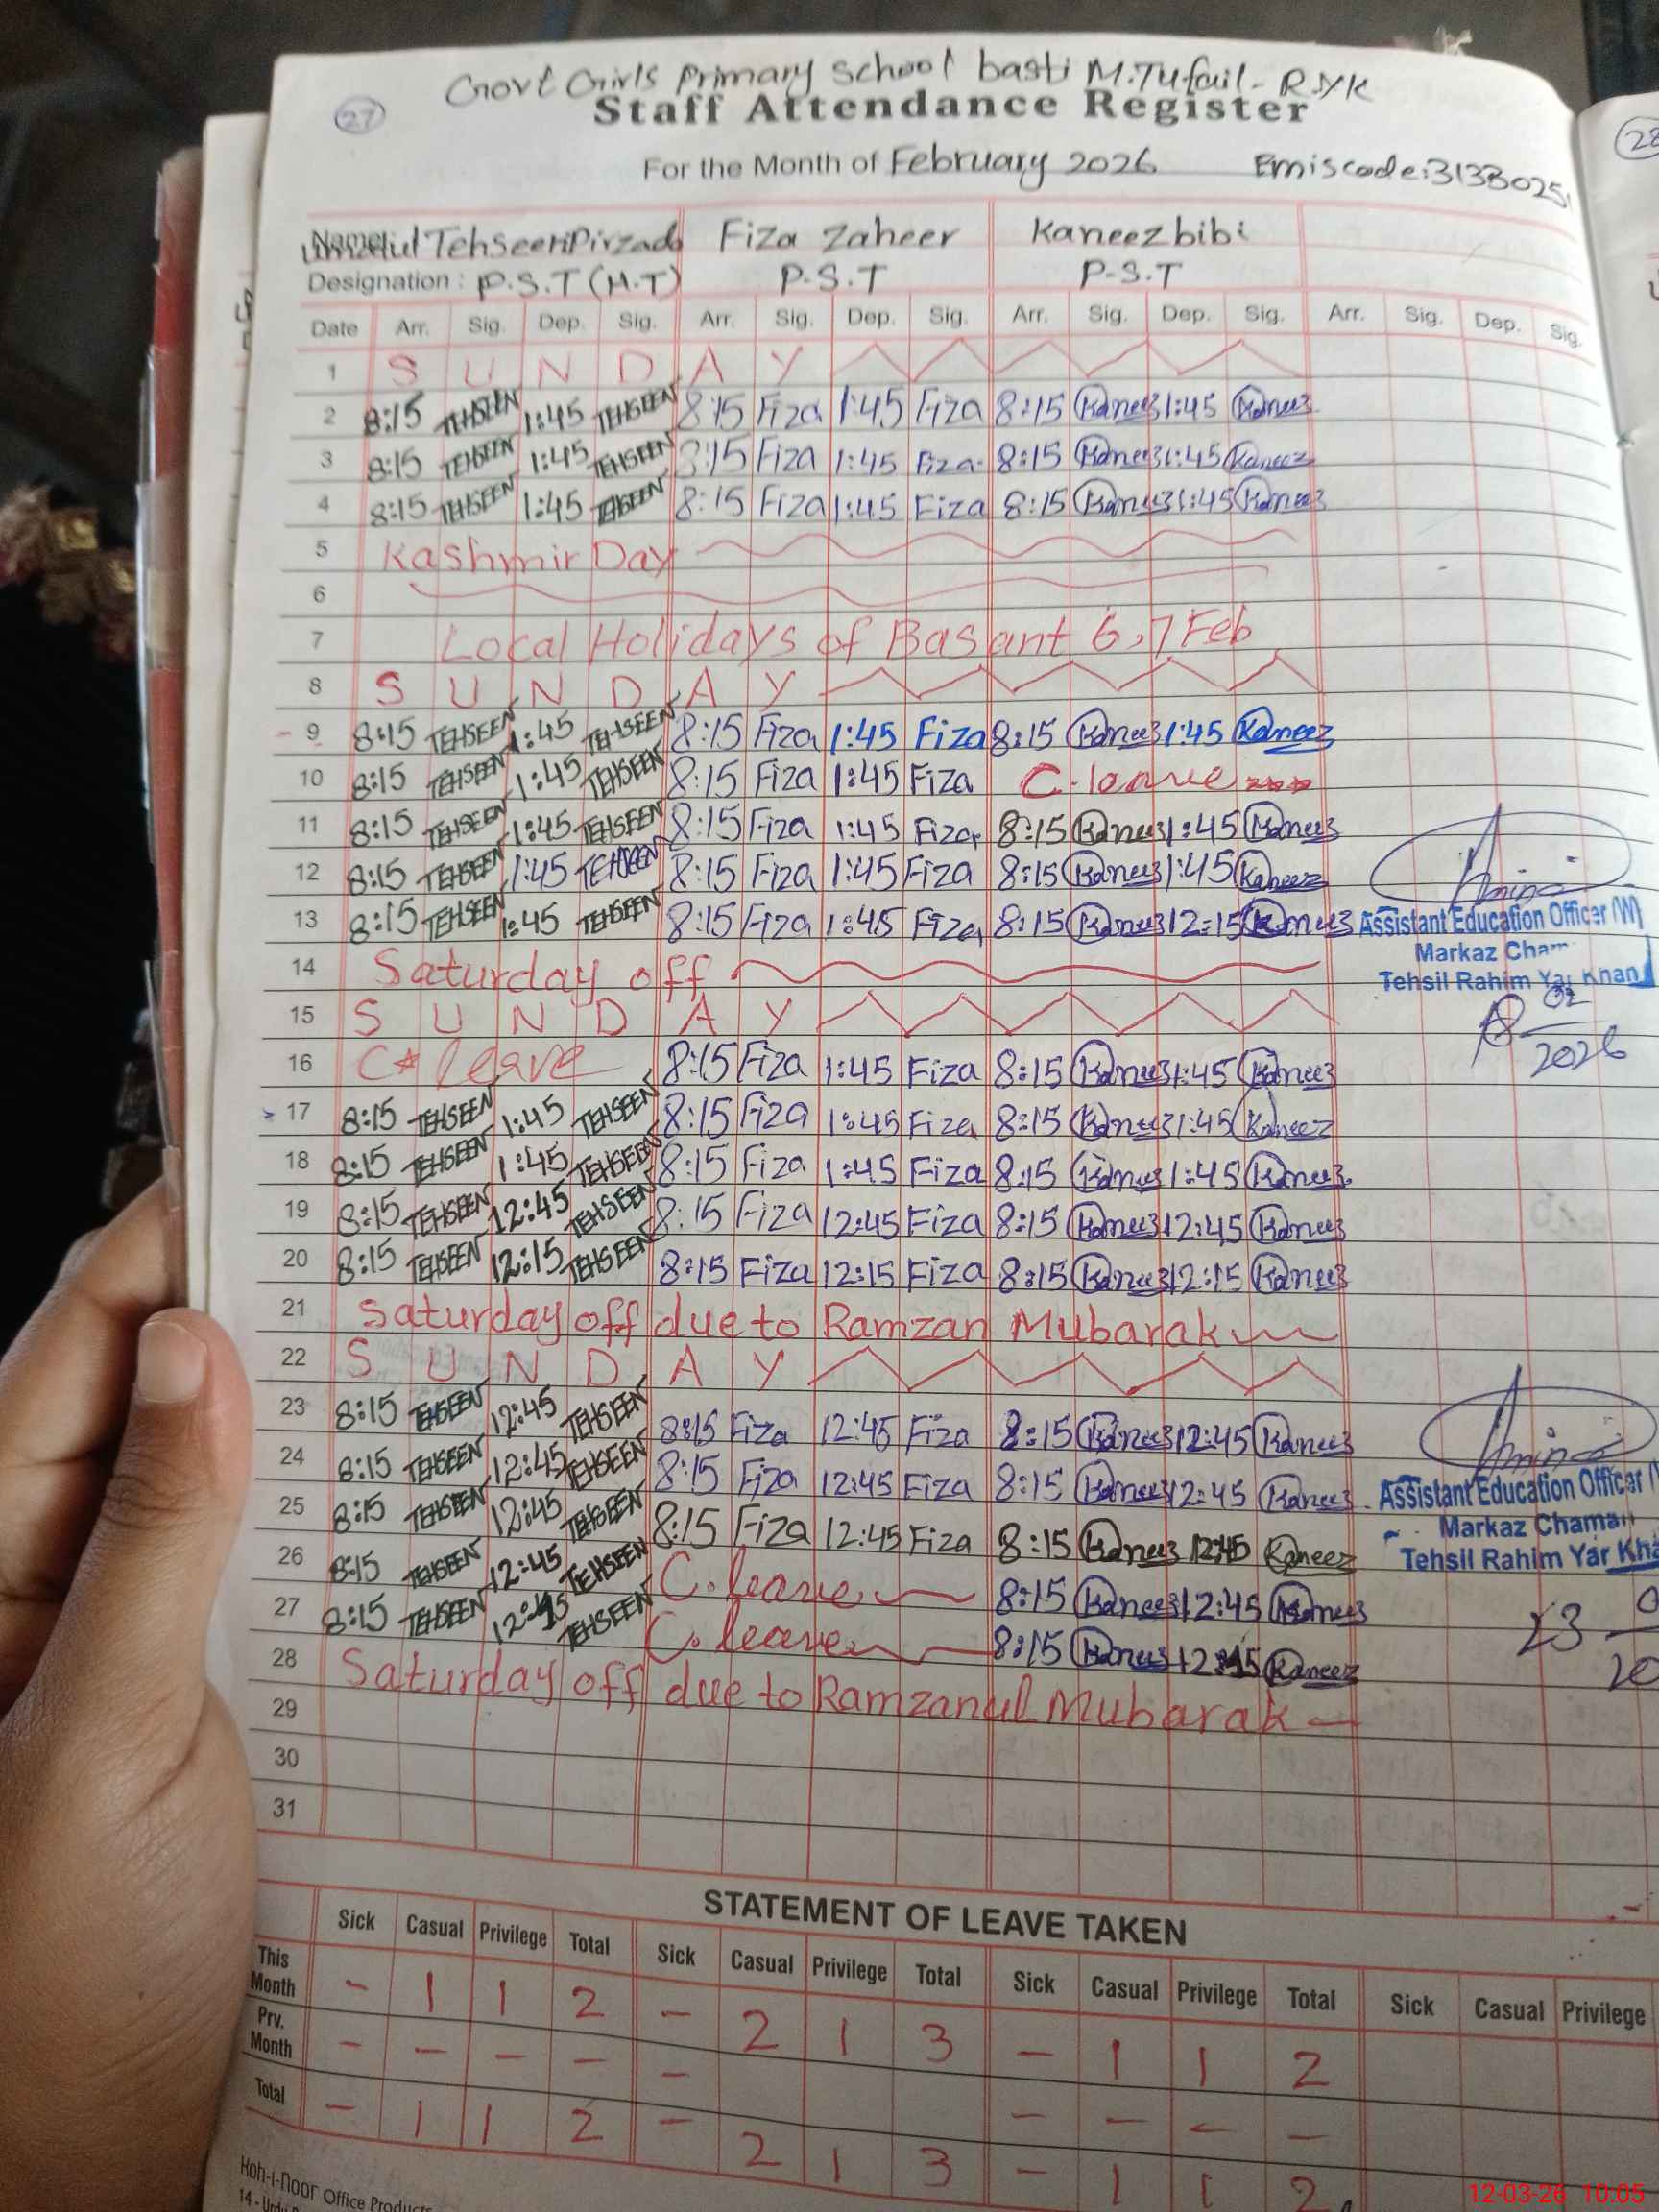 Govt Girls Primary School basti M.Tufail - RYK
27
Staff Attendance Register
28
For the Month of February 2026 Emiscode:31330251
Name: TehseenPirzada Fiza Zaheer Kaneez bibi
Designation : P.S.T (H.T) P.S.T P-S.T
Date Arr. Sig. Dep. Sig. Arr. Sig. Dep. Sig. Arr. Sig. Dep. Sig. Arr. Sig. Dep. Sig.
1 S U N D A Y
2 8:15 TEHSEEN 1:45 TEHSEEN 8:15 Fiza 1:45 Fiza 8:15 Kaneez 1:45 Kaneez
3 8:15 TEHSEEN 1:45 TEHSEEN 8:15 Fiza 1:45 Fiza 8:15 Kaneez 1:45 Kaneez
4 8:15 TEHSEEN 1:45 TEHSEEN 8:15 Fiza 1:45 Fiza 8:15 Kaneez 1:45 Kaneez
5 Kashmir Day
6
7 Local Holidays of Basant 6,7 Feb
8 S U N D A Y
9 8:15 TEHSEEN 1:45 TEHSEEN 8:15 Fiza 1:45 Fiza 8:15 Kaneez 1:45 Kaneez
10 8:15 TEHSEEN 1:45 TEHSEEN 8:15 Fiza 1:45 Fiza C.leave
11 8:15 TEHSEEN 1:45 TEHSEEN 8:15 Fiza 1:45 Fiza 8:15 Kaneez 1:45 Kaneez
12 8:15 TEHSEEN 1:45 TEHSEEN 8:15 Fiza 1:45 Fiza 8:15 Kaneez 1:45 Kaneez
13 8:15 TEHSEEN 1:45 TEHSEEN 8:15 Fiza 1:45 Fiza 8:15 Kaneez 12:15 Kaneez
Amina
Assistant Education Officer (W)
Markaz Cham
Tehsil Rahim Yar Khan
18 02
2026
14 Saturday off
15 S U N D A Y
16 C leave 8:15 Fiza 1:45 Fiza 8:15 Kaneez 1:45 Kaneez
17 8:15 TEHSEEN 1:45 TEHSEEN 8:15 Fiza 1:45 Fiza 8:15 Kaneez 1:45 Kaneez
18 8:15 TEHSEEN 1:45 TEHSEEN 8:15 Fiza 1:45 Fiza 8:15 Kaneez 1:45 Kaneez
19 8:15 TEHSEEN 12:45 TEHSEEN 8:15 Fiza 12:45 Fiza 8:15 Kaneez 12:45 Kaneez
20 8:15 TEHSEEN 12:15 TEHSEEN 8:15 Fiza 12:15 Fiza 8:15 Kaneez 12:15 Kaneez
21 Saturday off due to Ramzan Mubarak
22 S U N D A Y
23 8:15 TEHSEEN 12:45 TEHSEEN 8:15 Fiza 12:45 Fiza 8:15 Kaneez 12:45 Kaneez
24 8:15 TEHSEEN 12:45 TEHSEEN 8:15 Fiza 12:45 Fiza 8:15 Kaneez 12:45 Kaneez
25 8:15 TEHSEEN 12:45 TEHSEEN 8:15 Fiza 12:45 Fiza 8:15 Kaneez 12:45 Kaneez
26 8:15 TEHSEEN 12:45 TEHSEEN C.leave 8:15 Kaneez 12:45 Kaneez
27 8:15 TEHSEEN TEHSEEN C.leave 8:15 Kaneez Kaneez
Amina
Assistant Education Officer
Markaz Chaman
Tehsil Rahim Yar Kha
23 0
20
28 Saturday off due to Ramzanul Mubarak
29
30
31
STATEMENT OF LEAVE TAKEN
Sick Casual Privilege Total Sick Casual Privilege Total Sick Casual Privilege Total Sick Casual Privilege
This Month - 1 1 2 - 2 1 3 - 1 1 2
Prv. Month - - - - - - - - -
Total - 1 1 2 - 2 1 3 - 1 1 2
Koh-i-Noor Office Products
14 - Urdu
12-03-26 10:05